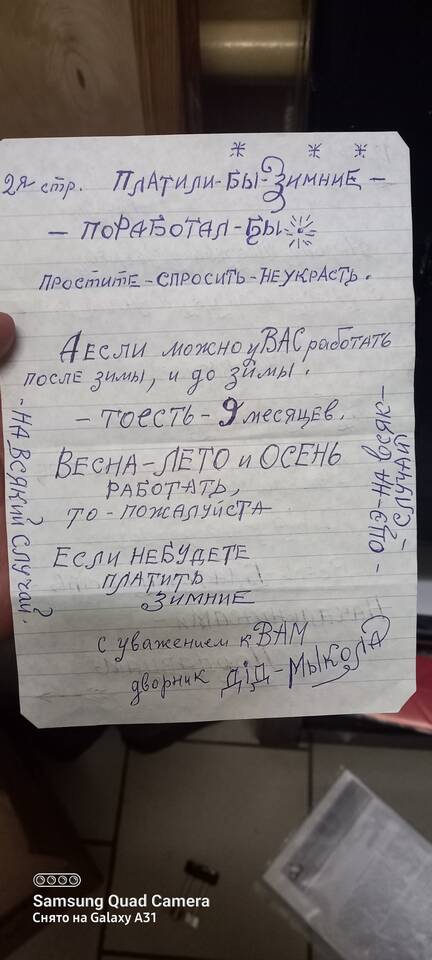 * * *
2я стр. ПЛАТИЛИ-БЫ-ЗИМНИЕ-
- ПОРАБОТАЛ-БЫ
ПРОСТИТЕ-СПРОСИТЬ-НЕ УКРАСТЬ.
А ЕСЛИ можно у ВАС работать
ПОСЛЕ ЗИМЫ, и до ЗИМЫ.
- ТОЕСТЬ- 9 месяцев.
ВЕСНА-ЛЕТО и ОСЕНЬ
РАБОТАТЬ,
ТО-ПОЖАЛУЙСТА
ЕСЛИ НЕБУДЕТЕ
ПЛАТИТЬ
ЗИМНИЕ
с уважением к ВАМ
дворник ДІД-МЫКОЛА
-НА ВСЯКИЙ СЛУЧАЙ.
-ОЦЭ-НА ВСЯК-
-СЛУЧАЙ-
Samsung Quad Camera
Снято на Galaxy A31